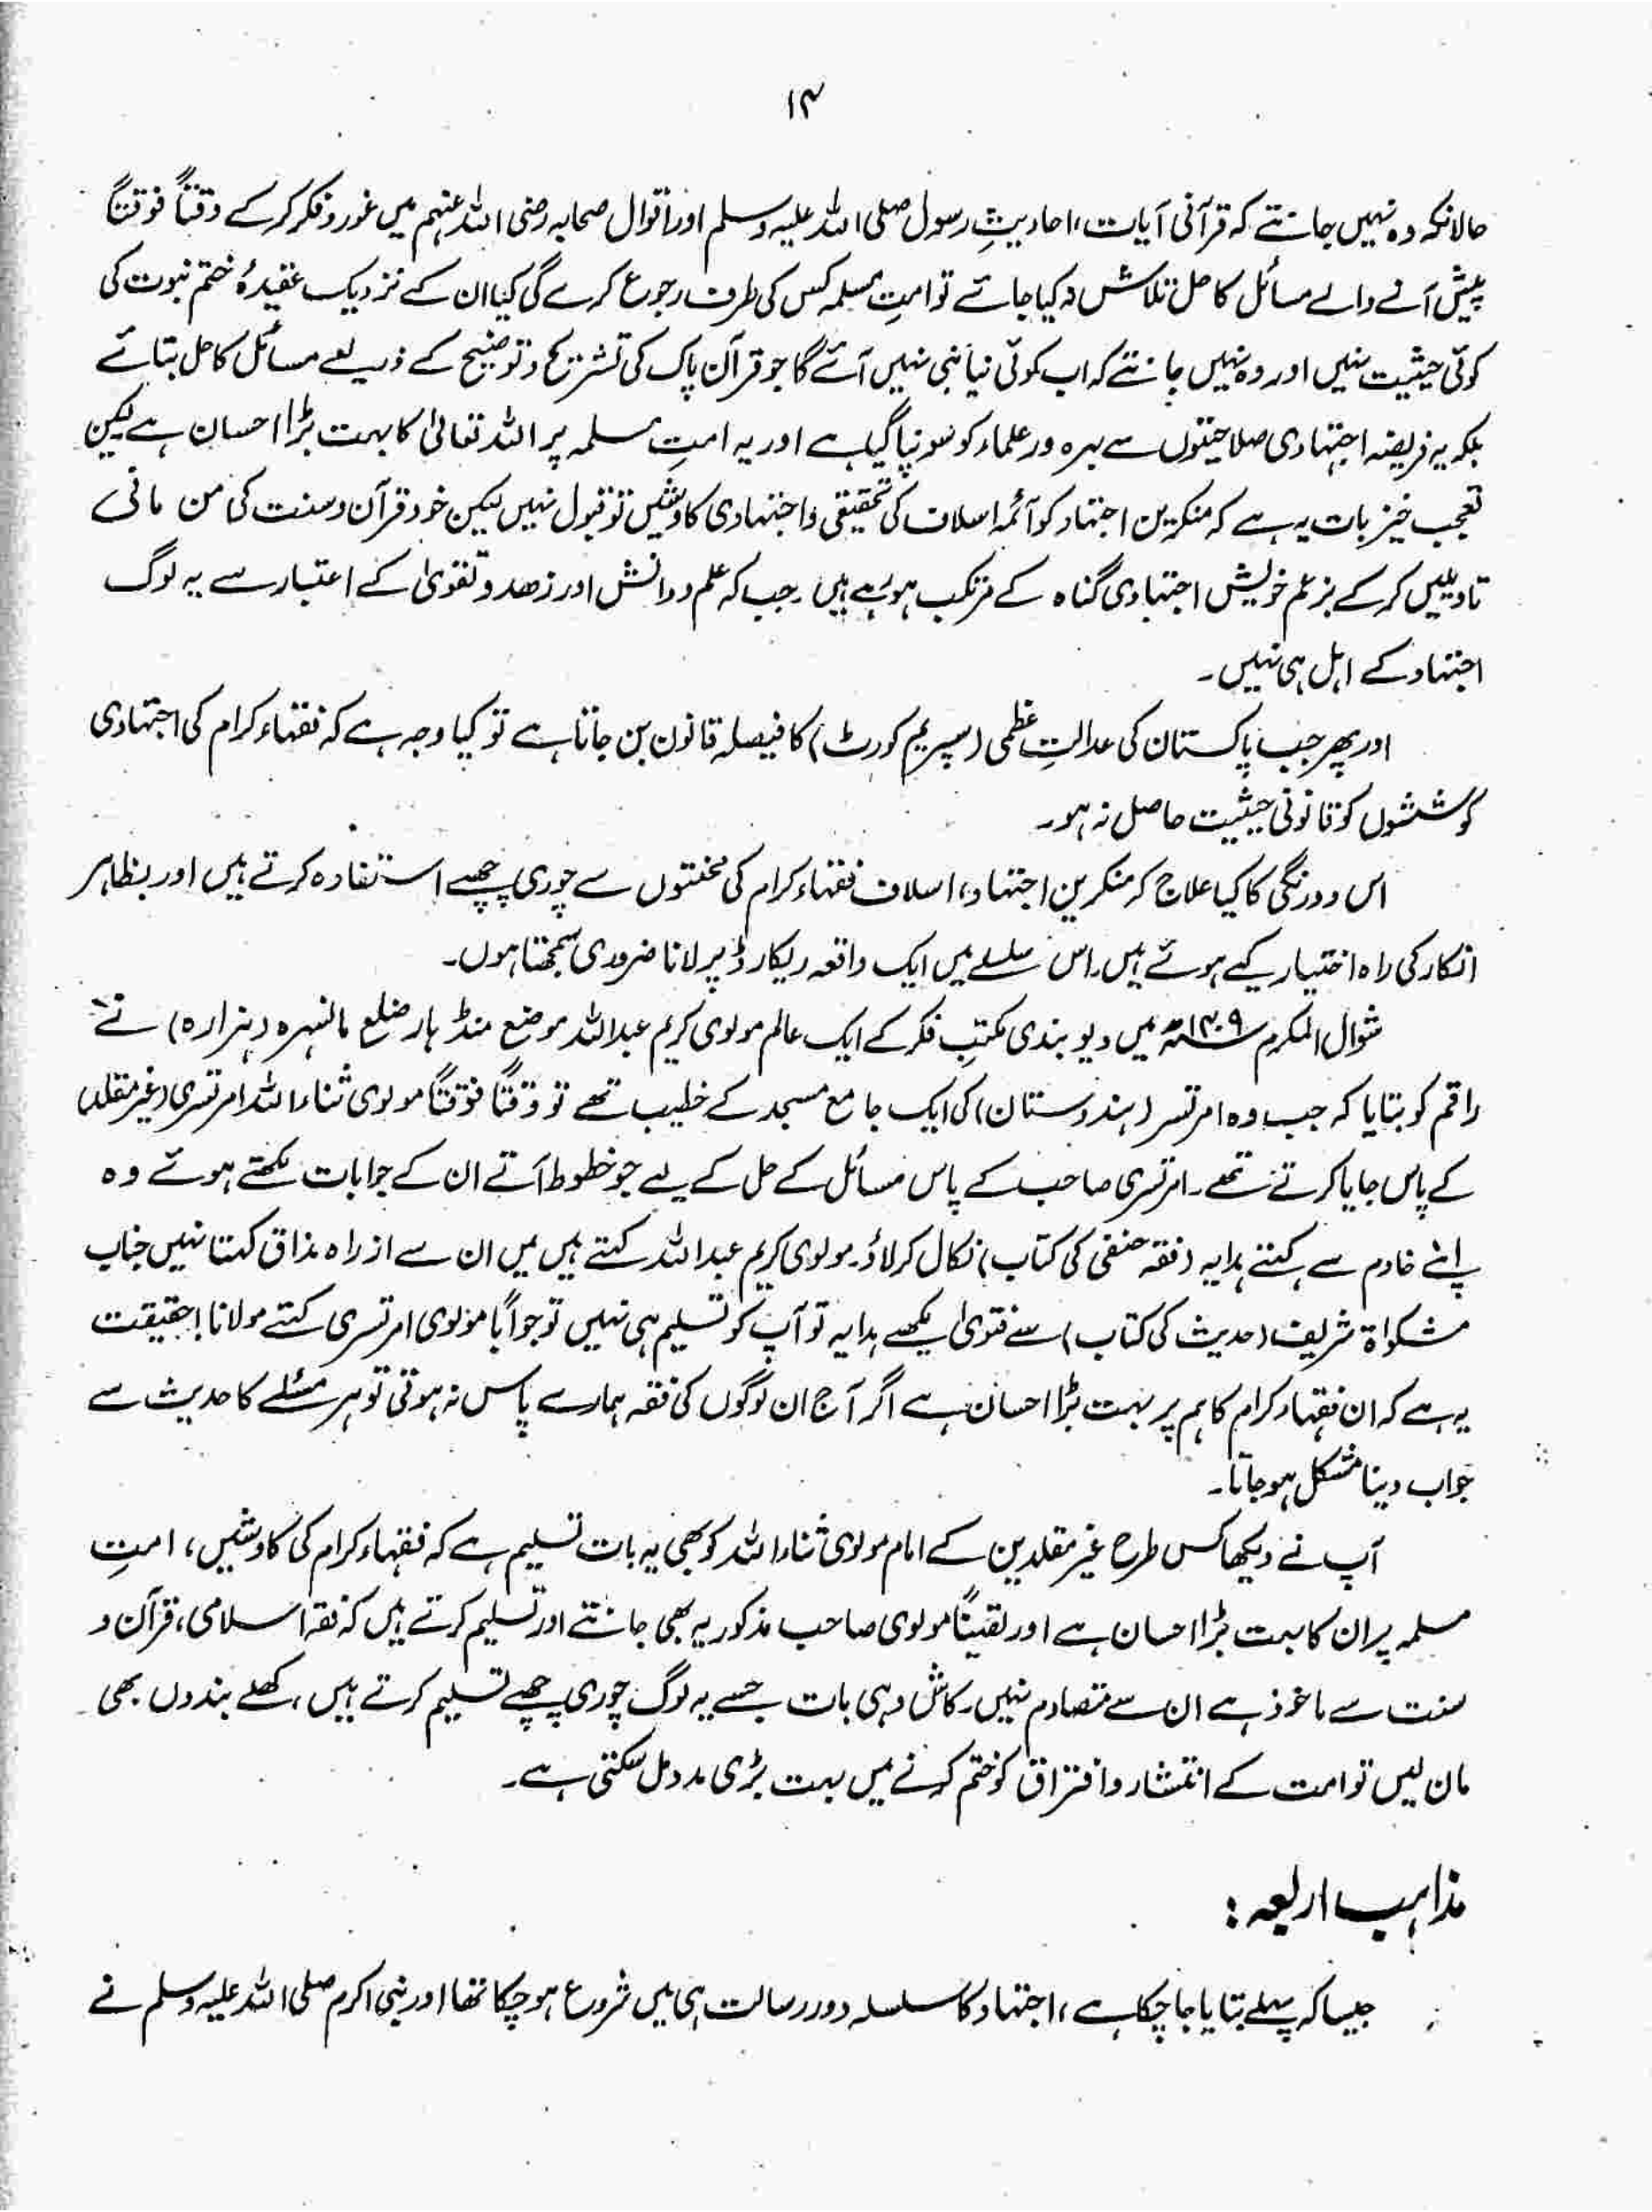 ۱۴
حالانکہ وہ نہیں جانتے کہ قرآنی آیات، احادیثِ رسول صلی اللہ علیہ وسلم اور اقوال صحابہ رضی اللہ عنہم میں غور و فکر کر کے وقتاً فوقتاً
پیش آنے والے مسائل کا حل تلاش نہ کیا جائے تو امتِ مسلمہ کس کی طرف رجوع کرے گی کیا ان کے نزدیک عقیدۂ ختم نبوت کی
کوئی حیثیت نہیں اور وہ نہیں جانتے کہ اب کوئی نیا نبی نہیں آئے گا جو قرآن پاک کی تشریح و توضیح کے ذریعے مسائل کا حل بتائے
بلکہ یہ فریضہ اجتہادی صلاحیتوں سے بہرہ ور علماء کو سونپا گیا ہے اور یہ امتِ مسلمہ پر اللہ تعالیٰ کا بہت بڑا احسان ہے لیکن
تعجب خیز بات یہ ہے کہ منکرین اجتہاد کو آئمہ اسلاف کی تحقیقی و اجتہادی کاوشیں تو قبول نہیں لیکن خود قرآن و سنت کی من مانی
تاویلیں کر کے بزعم خویش اجتہادی گناہ کے مرتکب ہو رہے ہیں۔ جب کہ علم و دانش اور زھد و تقویٰ کے اعتبار سے یہ لوگ
اجتہاد کے اہل ہی نہیں۔
اور پھر جب پاکستان کی عدالتِ عظمی (سپریم کورٹ) کا فیصلہ قانون بن جاتا ہے تو کیا وجہ ہے کہ فقہاء کرام کی اجتہادی
کوششوں کو قانونی حیثیت حاصل نہ ہو۔
اس دورنگی کا کیا علاج کہ منکرین اجتہاد، اسلاف فقہاء کرام کی محنتوں سے چوری چھپے استفادہ کرتے ہیں اور بظاہر
انکار کی راہ اختیار کیے ہوئے ہیں۔ اس سلسلے میں ایک واقعہ ریکارڈ پر لانا ضروری سمجھتا ہوں۔
شوال المکرم ۱۴۰۹ھ میں دیوبندی مکتبِ فکر کے ایک عالم مولوی کریم عبداللہ موضع منڈہار ضلع مانسہرہ (ہزارہ) نے
راقم کو بتایا کہ جب وہ امرتسر (ہندوستان) کی ایک جامع مسجد کے خطیب تھے تو وقتاً فوقتاً مولوی ثناء اللہ امرتسری (غیر مقلد)
کے پاس جایا کرتے تھے۔ امرتسری صاحب کے پاس مسائل کے حل کے لیے جو خطوط آتے ان کے جوابات لکھتے ہوئے وہ
اپنے خادم سے کہتے ہدایہ (فقہ حنفی کی کتاب) نکال کر لاؤ۔ مولوی کریم عبداللہ کہتے ہیں میں ان سے از راہ مذاق کہتا نہیں جناب
مشکواۃ شریف (حدیث کی کتاب) سے فتویٰ لکھے ہدایہ تو آپ کو تسلیم ہی نہیں تو جواباً مولوی امرتسری کہتے مولانا! حقیقت
یہ ہے کہ ان فقہاء کرام کا ہم پر بہت بڑا احسان ہے اگر آج ان لوگوں کی فقہ ہمارے پاس نہ ہوتی تو ہر مسئلے کا حدیث سے
جواب دینا مشکل ہو جاتا۔
آپ نے دیکھا کس طرح غیر مقلدین کے امام مولوی ثناء اللہ کو بھی یہ بات تسلیم ہے کہ فقہاء کرام کی کاوشیں، امتِ
مسلمہ پر ان کا بہت بڑا احسان ہے اور یقیناً مولوی صاحب مذکور یہ بھی جانتے اور تسلیم کرتے ہیں کہ فقہ اسلامی، قرآن و
سنت سے ماخوذ ہے ان سے متصادم نہیں۔ کاش وہی بات جسے یہ لوگ چوری چھپے تسلیم کرتے ہیں، کھلے بندوں بھی
مان لیں تو امت کے انتشار و افتراق کو ختم کرنے میں بہت بڑی مدد مل سکتی ہے۔
مذاہب اربعہ:
جیسا کہ پہلے بتایا جا چکا ہے، اجتہاد کا سلسلہ دور رسالت ہی میں شروع ہو چکا تھا اور نبی اکرم صلی اللہ علیہ وسلم نے